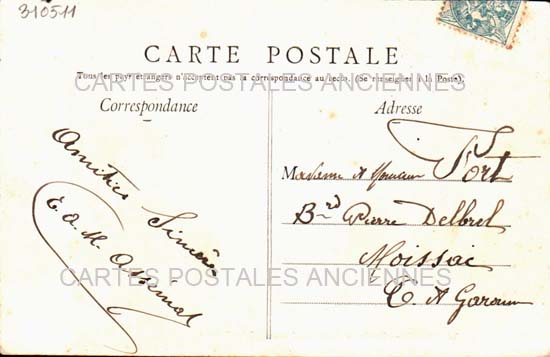 310511
CARTE POSTALE
Tous les pays étrangers n'acceptent pas la correspondance au recto. (Se renseigner à la Poste).
CARTES POSTALES ANCIENNES
Correspondance
Adresse
Amitiés Sincères
E. O. M.
Madame & Monsieur Fort
Bd Pierre Delbrel
Moissac
CARTES POSTALES ANCIENNES
T. & Garonne